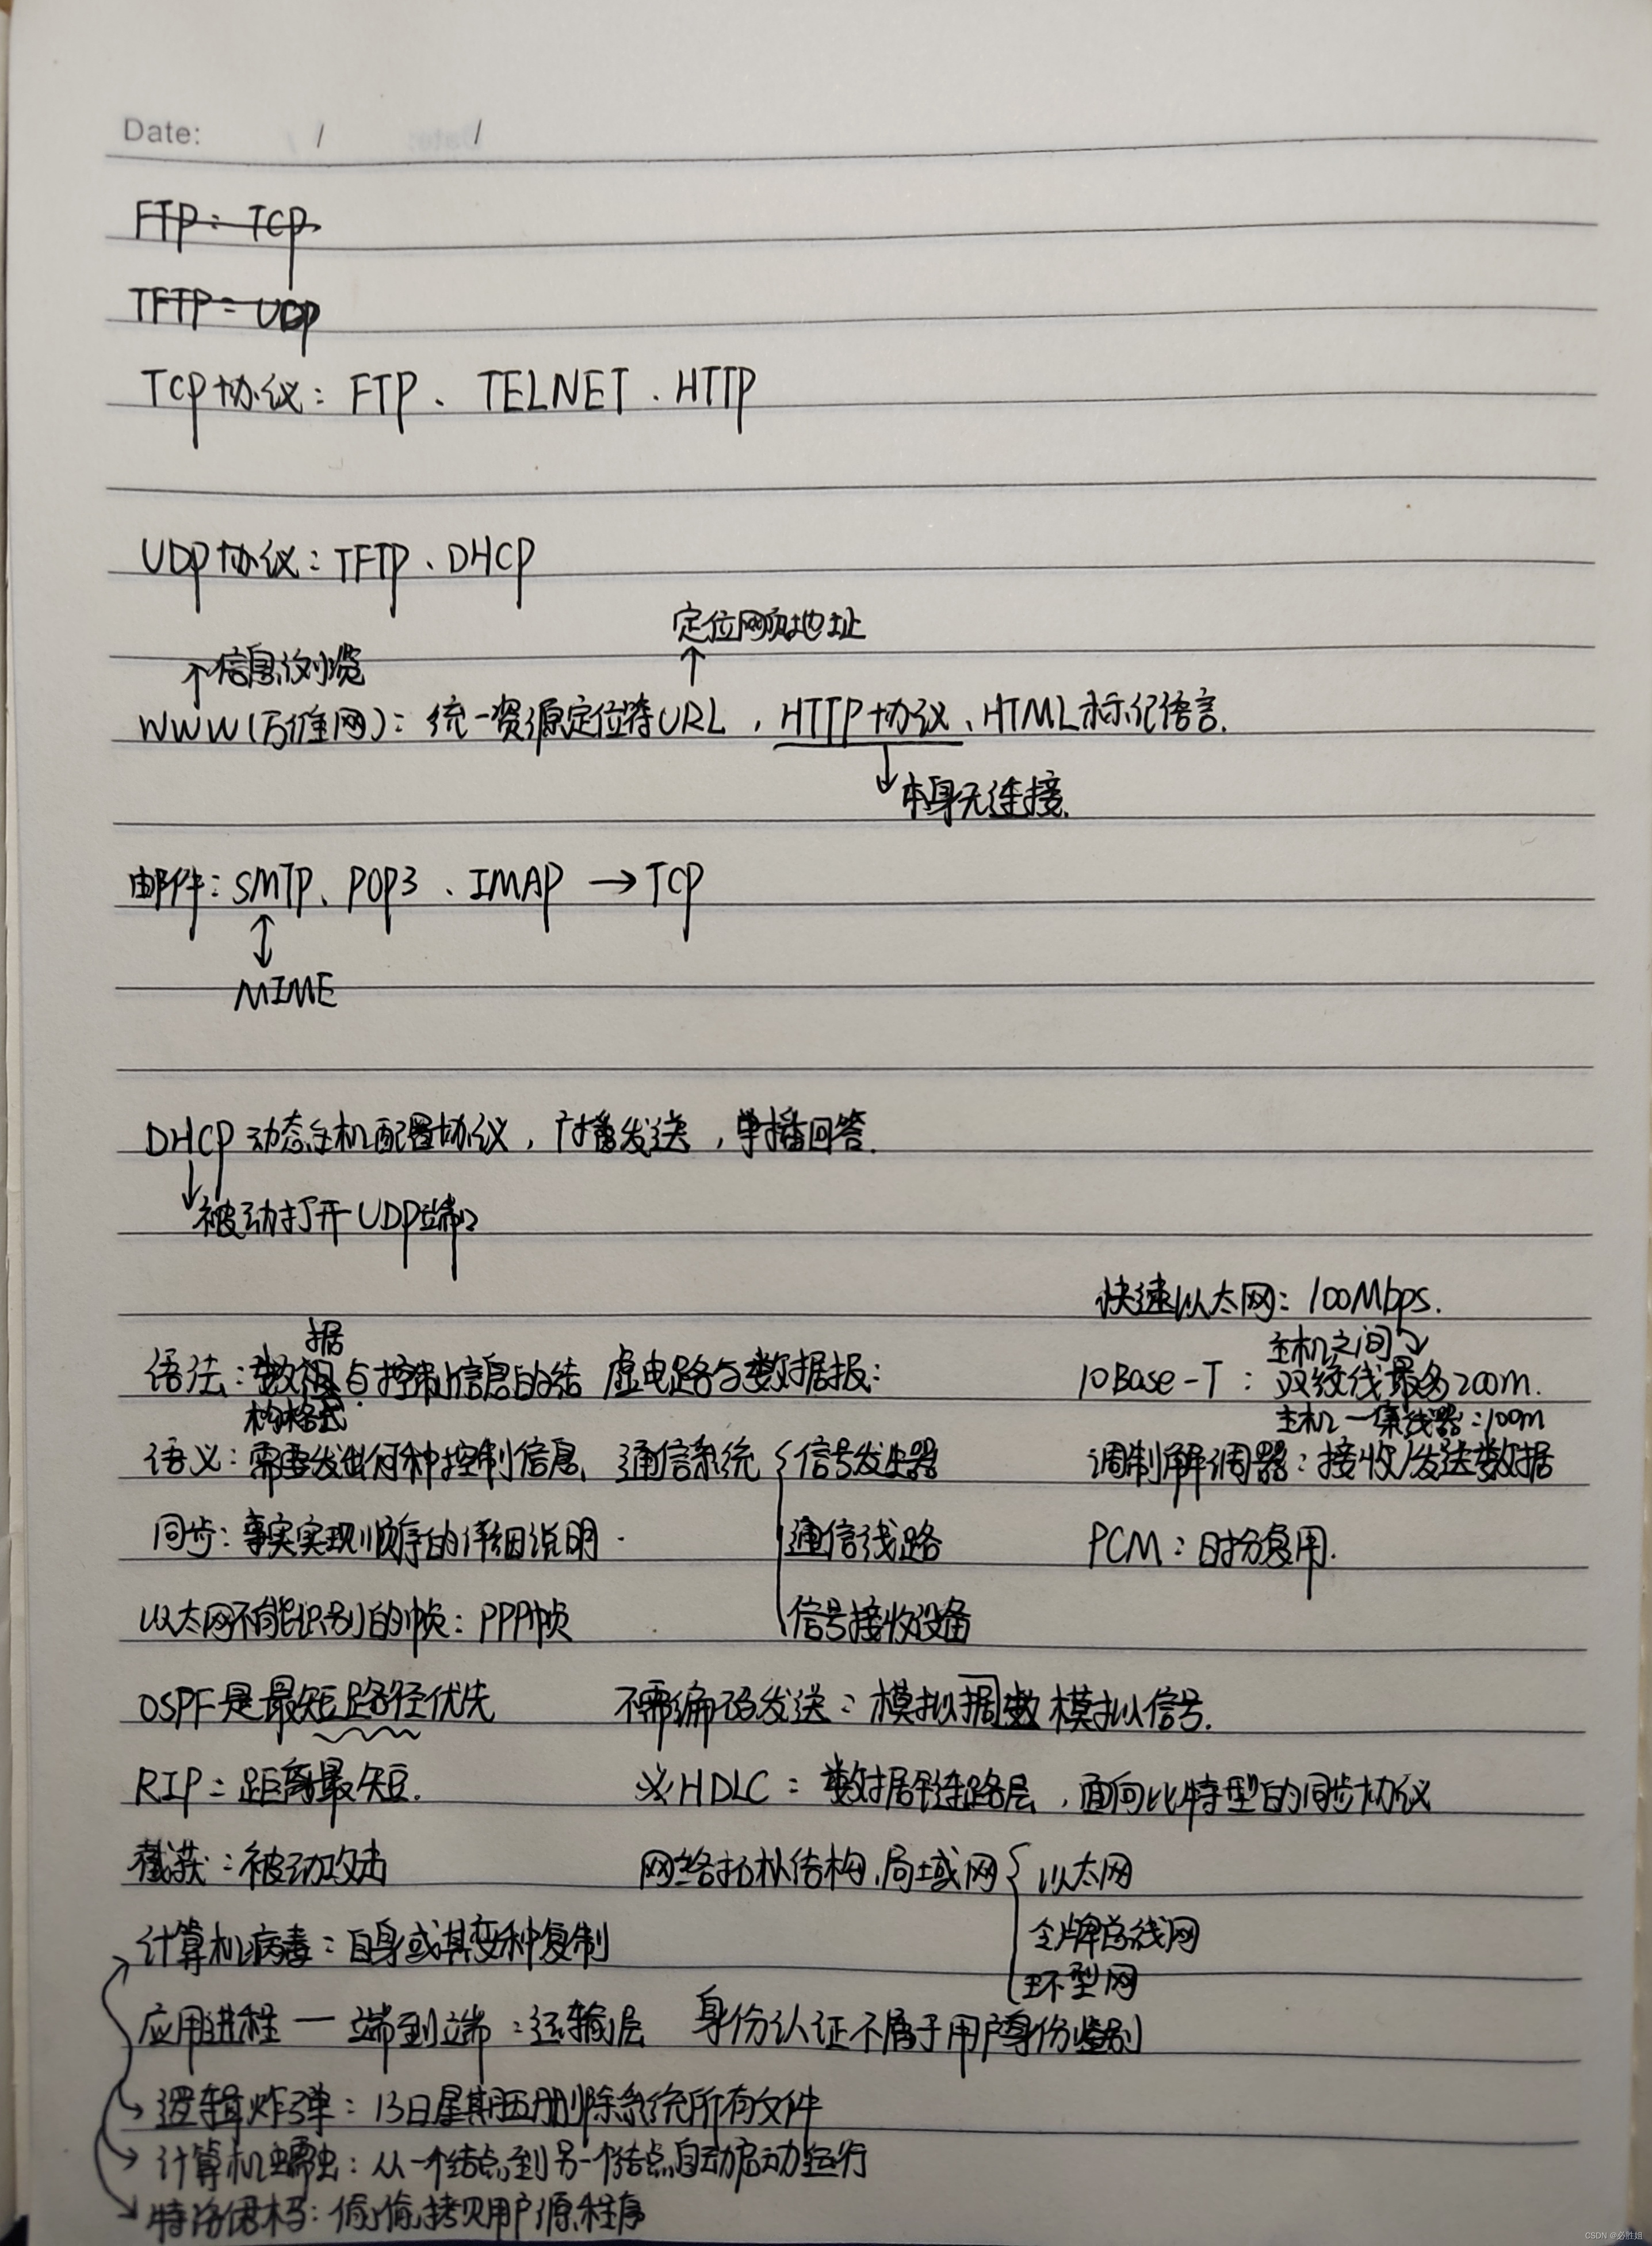 Date: / /
FTP: TCP
TFTP: UDP
TCP协议: FTP、TELNET、HTTP
UDP协议: TFTP、DHCP
定位网页地址
信息浏览
WWW(万维网): 统一资源定位符URL, HTTP协议、HTML标记语言.
本身无连接.
邮件: SMTP、POP3、IMAP → TCP
MIME
DHCP 动态主机配置协议, 广播发送, 单播回答.
被动打开UDP端口
快速以太网: 100Mbps.
据
主机之间
语法: 数 与控制信息的结 虚电路与数据报: 10Base-T: 双绞线最多200m.
构格式. 主机—集线器: 100m
语义: 需要发出何种控制信息. 通信系统 信号发生器 调制解调器: 接收/发送数据
同步: 事实实现顺序的详细说明. 通信线路 PCM: 时分复用.
以太网不能识别的帧: PPP帧 信号接收设备
OSPF是最短路径优先 不需编码发送: 模拟数据 模拟信号.
RIP: 距离最短. 义HDLC: 数据链路层, 面向比特型的同步协议
截获: 被动攻击 网络拓扑结构, 局域网 以太网
计算机病毒: 自身或其变种复制 令牌总线网
环型网
应用进程 — 端到端: 运输层 身份认证不属于用户身份鉴别
逻辑炸弹: 13日星期五删除系统所有文件
计算机蠕虫: 从一个结点到另一个结点自动启动运行
特洛伊木马: 偷偷拷贝用户源程序
CSDN @必胜姐